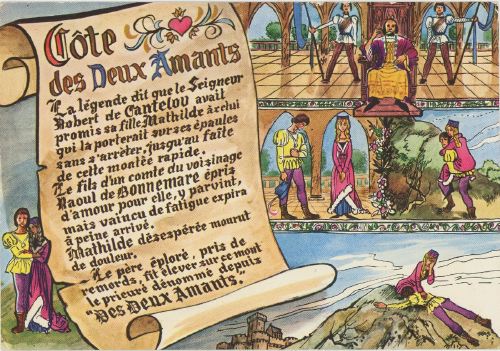 Côte
des Deux Amants
La légende dit que le Seigneur
Robert de Cantelou avait
promis sa fille Mathilde à celui
qui la porterait sur ses épaules
sans s'arrêter, jusqu'au faîte
de cette montée rapide.
Le fils d'un comte du voisinage
Raoul de Bonnemare épris
d'amour pour elle, y parvint,
mais vaincu de fatigue expira
à peine arrivé.
Mathilde désespérée mourut
de douleur.
Le père éploré, pris de
remords, fit élever sur ce mont
le prieuré dénommé depuis
"Des Deux Amants."